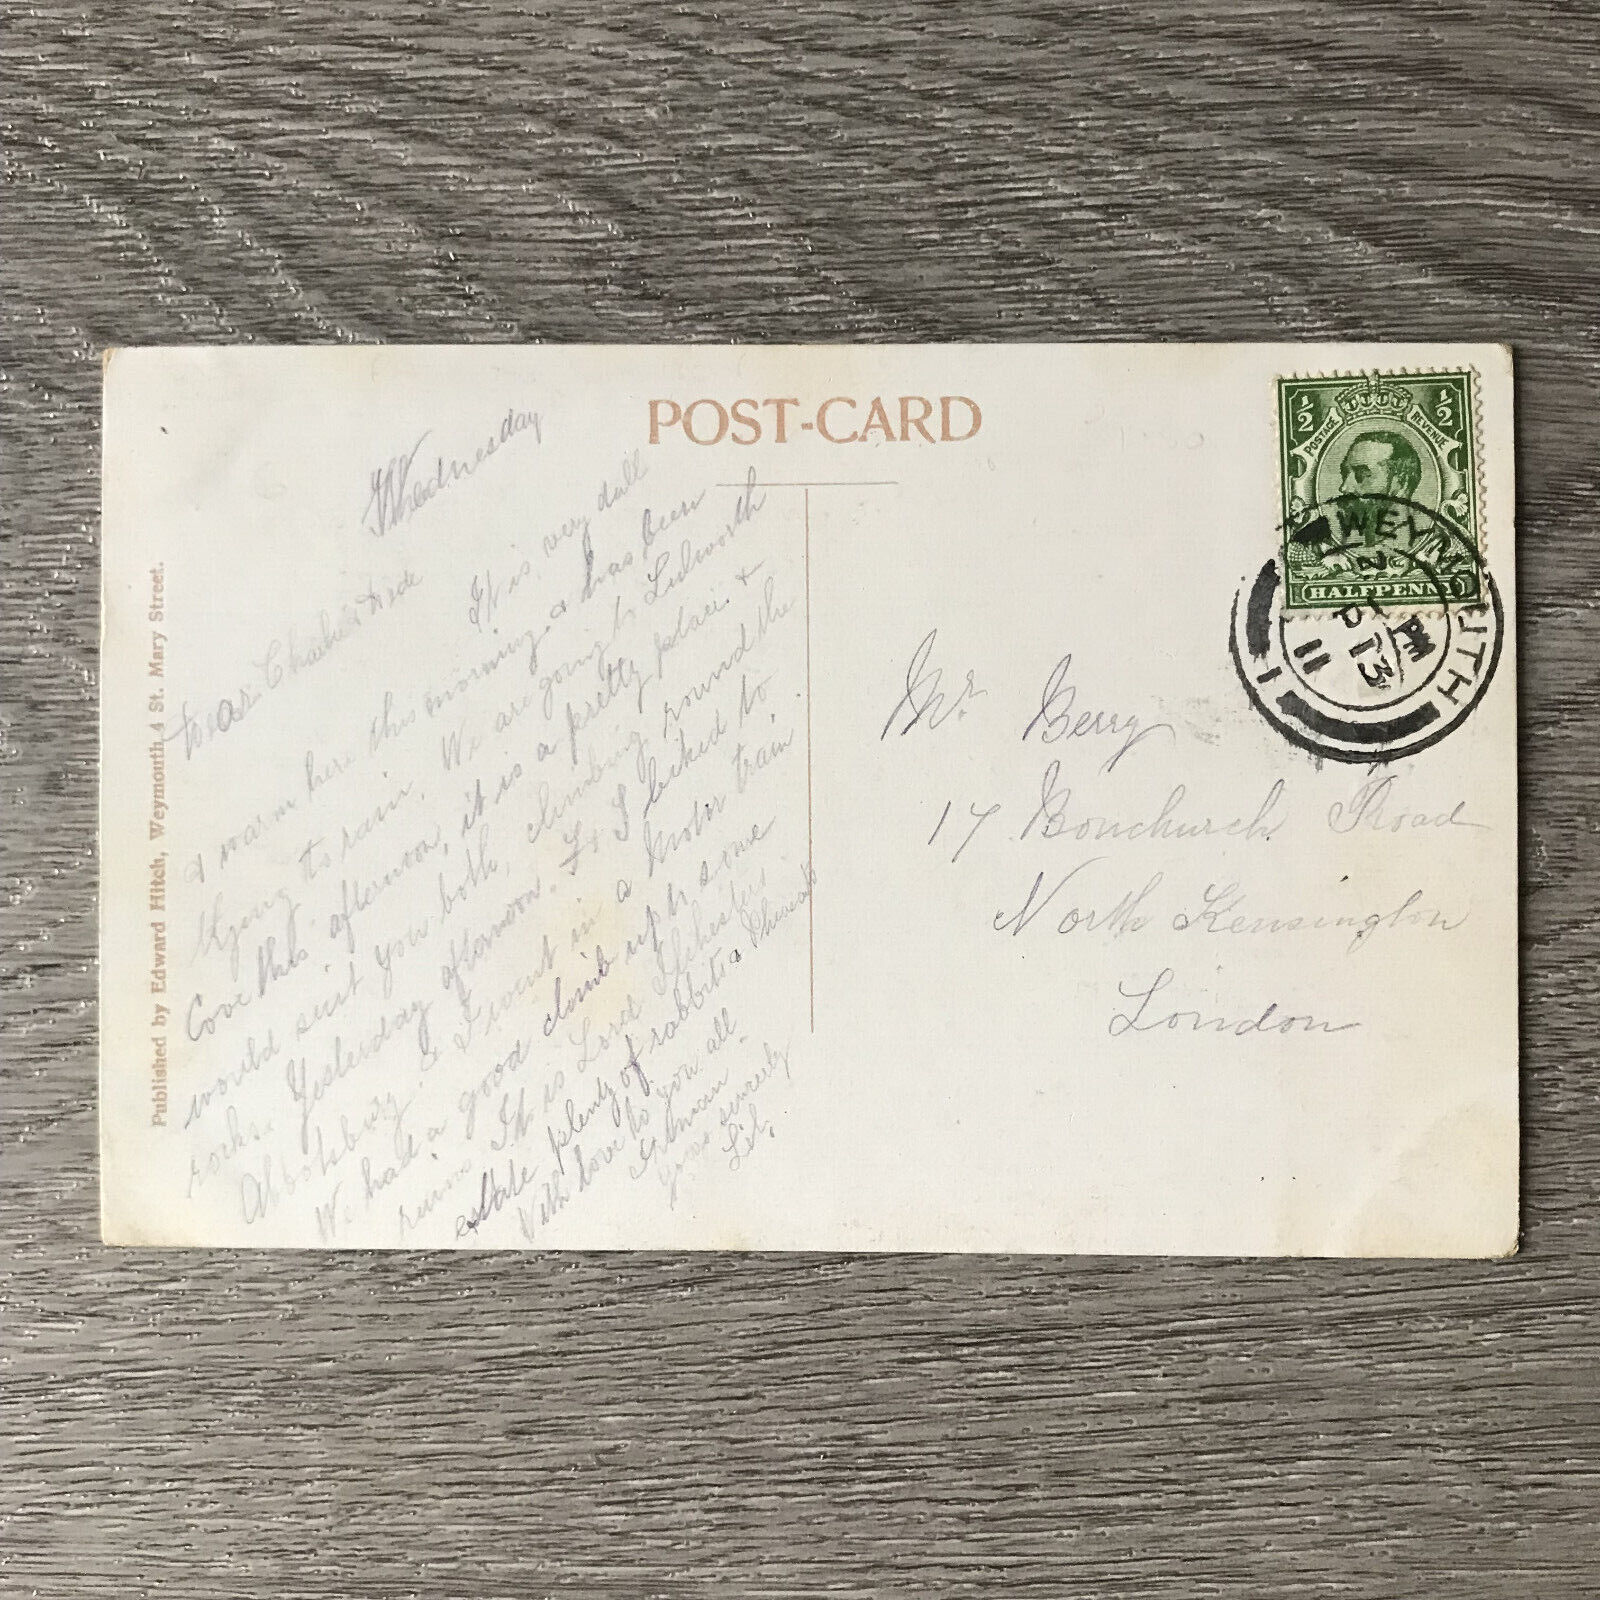 POST-CARD
Published by Edward Hitch, Weymouth, 4 St. Mary Street.
Wednesday
Dear Charlie &
It is very dull
& warm here this morning & has been
trying to rain. We are going to Lulworth
Cove this afternoon, it is a pretty place &
would suit you both, climbing round the
rocks. Yesterday afternoon F & I biked to
Abbotsbury & I went in a Motor train
We had a good climb up to some
ruins It is Lord Ilchesters
estate plenty of rabbits &
With love to you all
Yours sincerely
Lil.
Mr Berry
17 Bonchurch Road
North Kensington
London
1/2 1/2
POSTAGE REVENUE
HALFPENNY
WEYMOUTH
PM
SP 13
11
1